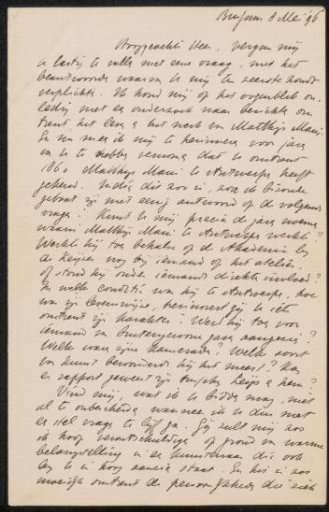 Bussum 8 Mei '96
Hooggeachte Heer, vergun mij
u lastig te vallen met eene vraag, met het
beantwoorden waarvan u mij ten zeerste zoudt
verplichten. Ik houd mij op het oogenblik on-
ledig met een onderzoek naar berichten om-
trent het leven & het werk van Matthijs Maris
En nu meen ik mij te herinneren voor jaren
van u te hebben vernomen dat u omtrent
1860 Matthijs Maris te Antwerpen heeft
gekend. Indien dit zoo is, zou ik bizonder
gebaat zijn met eenig antwoord op de volgende
vragen: Kunt u mij precies de jaren noemen
waarin Matthijs Maris te Antwerpen werkte?
Werkte hij toe behalve op de Akademie bij
de Keyser nog bij iemand op het atelier,
of stond hij onder iemands direkte invloed?
In welke conditie was hij te Antwerpen, hoe
was zijn levenswijze, herinnert gij u iets
omtrent zijn karakter? Werd hij toe voor
iemand van buitengewonen aard aangezien?
Welke waren zijne kameraden? Welke soort
van kunst bewonderde hij het meest? Was
er rapport geweest zijn tusschen Leys & hem?
Vind mij, wat ik u bidden mag, niet
al te onbescheiden wanneer ik u dus met
een stel vragen te lijf ga. Gij zult mij zoo
ik hoop verontschuldigen op grond van warme
belangstelling in een kunstenaar die ook
bij u in hoog aanzien staat. En het is zoo
moeielijk omtrent de persoonlijkheid die zich